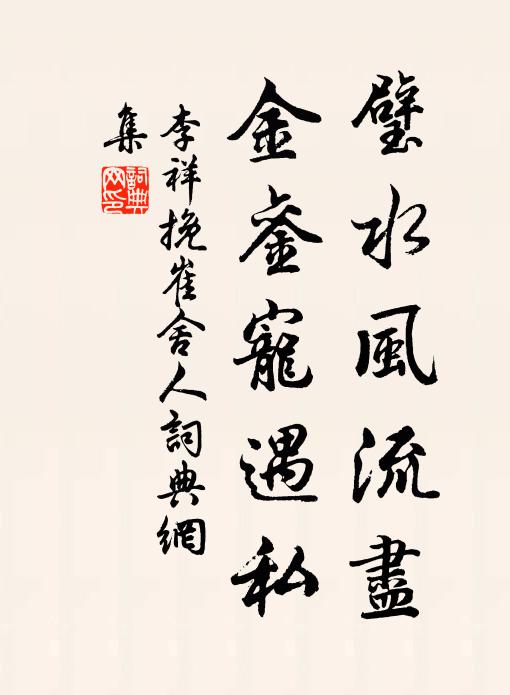 璧水風流盡
金銮寵遇私
李祥挽崔舍人詞典網
集
詞典网印